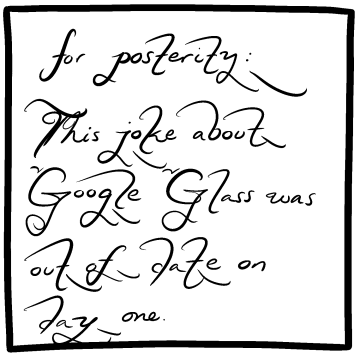 for posterity:
This joke about
Google Glass was
out of date on
day one.